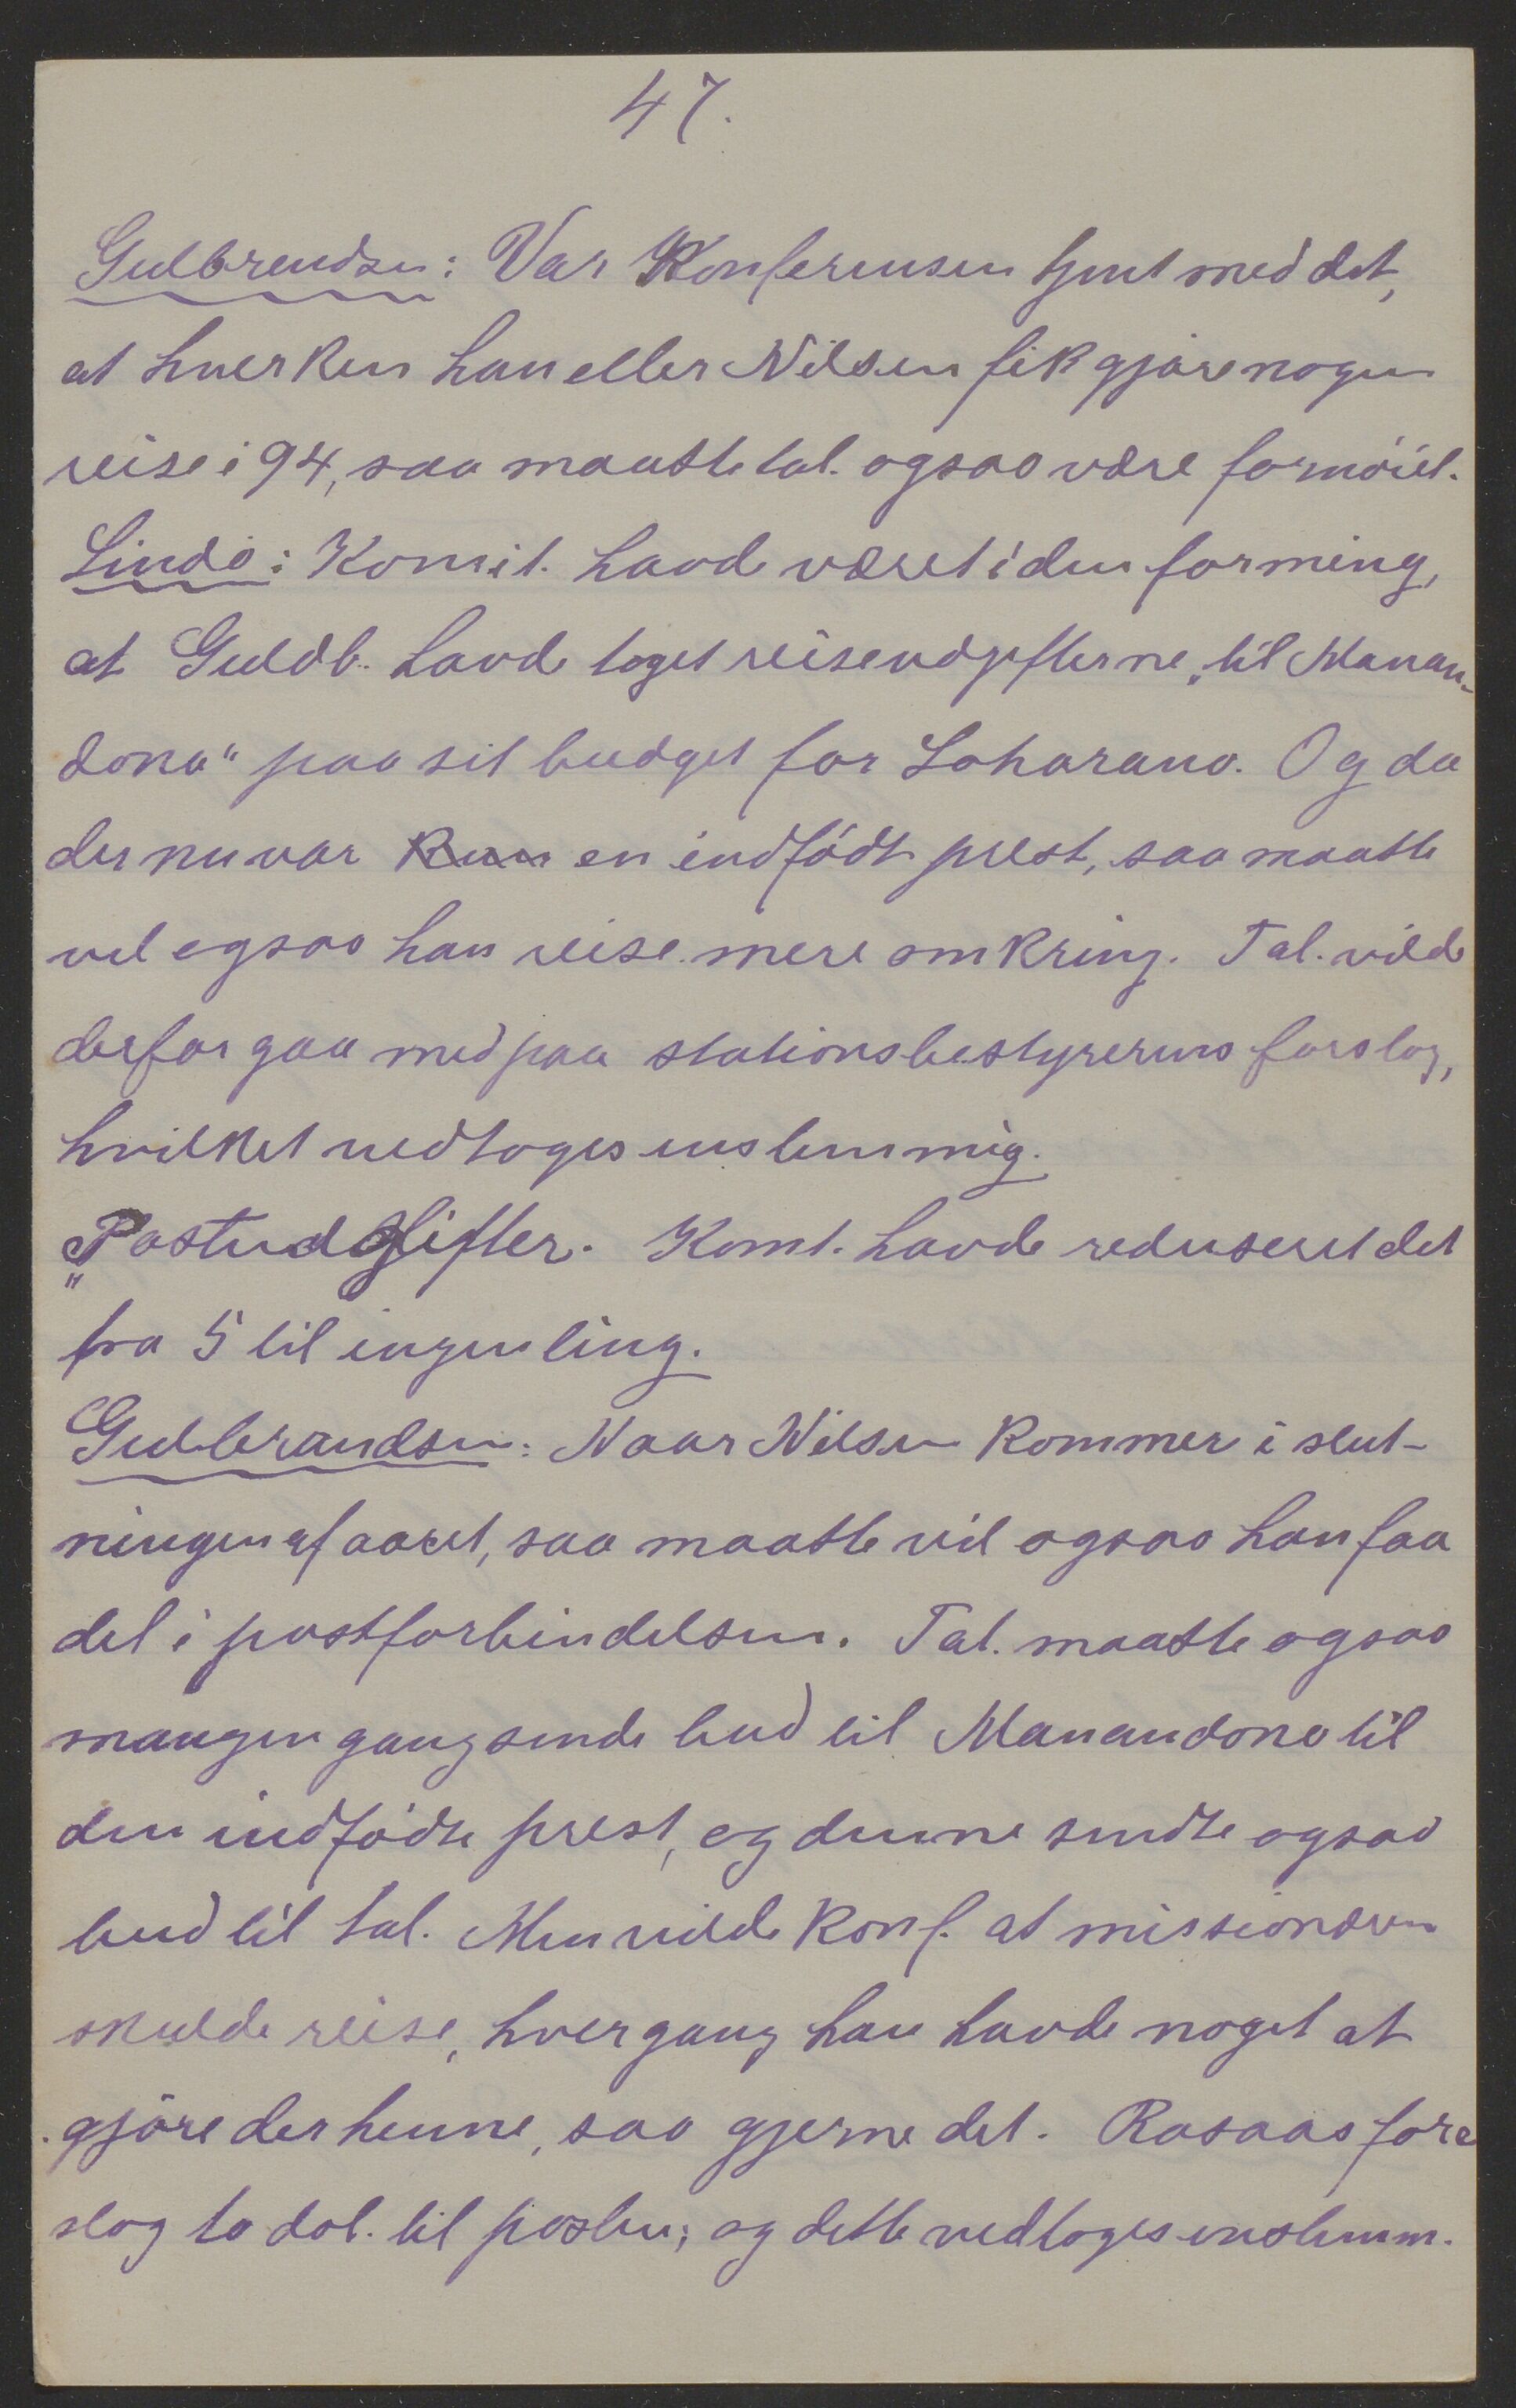 47.
Gulbrendsen: Var Konferensen tjent med det,
at hverken han eller Nilsen fik gjøre nogen
reise i 94, saa maatte tal. ogsaa være fornøiet.
Lindø: Komit. havde været i den forming,
at Guldb. havde taget reiseudgifterne „til Manan-
dona" paa sit budget for Loharano. Og da
der nu var kun en indfødt prest, saa maatte
vel ogsaa han reise mere omkring. Tal. vilde
derfor gaa med paa stationsbestyrerens forslag,
hvilket vedtoges enstemmig.
„Postudgifter. Komt. havde reduseret det
fra 5 til ingenting.
Gulbrandsen: Naar Nilsen kommer i slut-
ningen af aaret, saa maatte vel ogsaa han faa
del i postforbindelsen. Tal. maatte ogsaa
mangen gang sende bud til Manandona til
den indfødte prest, og denne sendte ogsaa
bud til tal. Men vilde konf. at missionæren
skulde reise, hver gang han havde noget at
gjøre derhenne, saa gjerne det. Rosaas fore
slog to dol. til posten; og dette vedtoges enstemm.